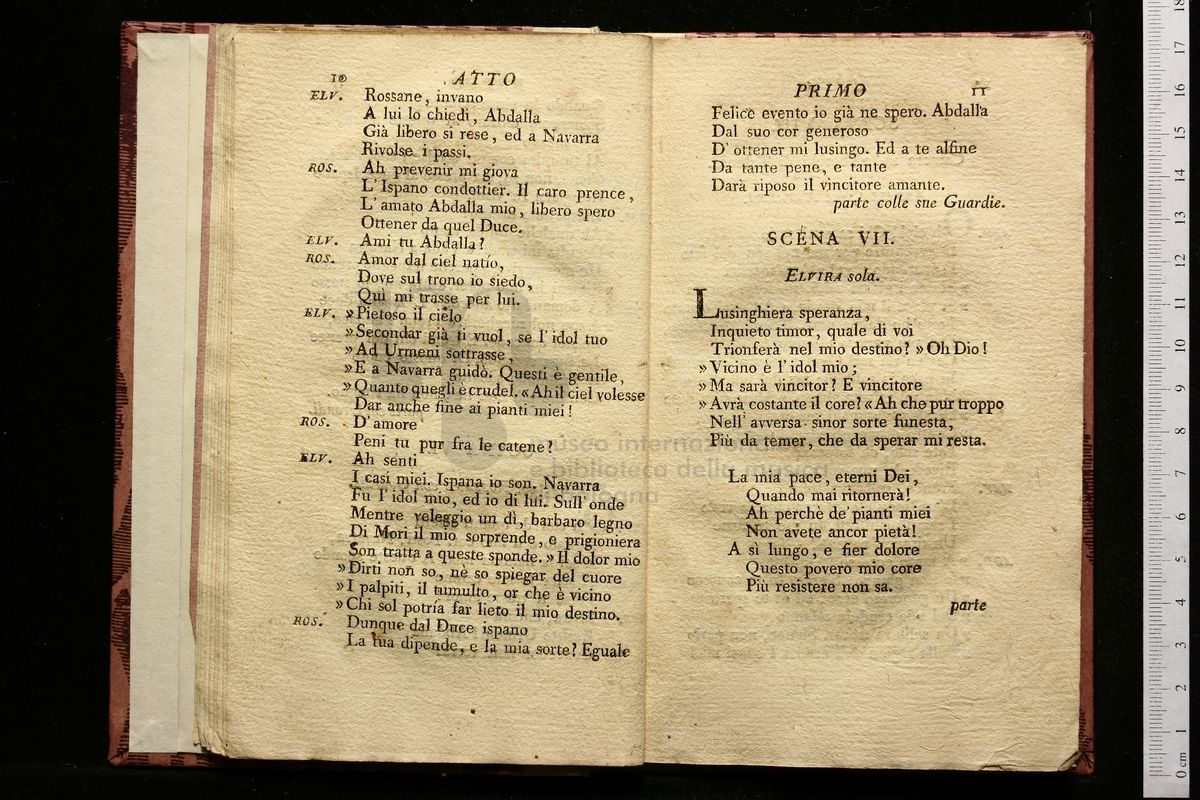 10 ATTO
ELV. Rossane, invano
A lui lo chiedi, Abdalla
Già libero si rese, ed a Navarra
Rivolse i passi.
ROS. Ah prevenir mi giova
L'Ispano condottier. Il caro prence,
L'amato Abdalla mio, libero spero
Ottener da quel Duce.
ELV. Ami tu Abdalla?
ROS. Amor dal ciel natío,
Dove sul trono io siedo,
Quì mi trasse per lui.
ELV. »Pietoso il cielo
»Secondar già ti vuol, se l'idol tuo
»Ad Urmeni sottrasse,
»E a Navarra guidò. Questi è gentile,
»Quanto quegli è crudel. «Ah il ciel volesse
Dar anche fine ai pianti miei!
ROS. D'amore
Peni tu pur fra le catene?
ELV. Ah senti
I casi miei. Ispana io son. Navarra
Fu l'idol mio, ed io di lui. Sull'onde
Mentre veleggio un dì, barbaro legno
Di Mori il mio sorprende, e prigioniera
Son tratta a queste sponde. »Il dolor mio
»Dirti non so, nè so spiegar del cuore
»I palpiti, il tumulto, or che è vicino
»Chi sol potría far lieto il mio destino.
ROS. Dunque dal Duce ispano
La tua dipende, e la mia sorte? Eguale
PRIMO 11
Felice evento io già ne spero. Abdalla
Dal suo cor generoso
D'ottener mi lusingo. Ed a te alfine
Da tante pene, e tante
Darà riposo il vincitore amante.
parte colle sue Guardie.
SCENA VII.
ELVIRA sola.
Lusinghiera speranza,
Inquieto timor, quale di voi
Trionferà nel mio destino? »Oh Dio!
»Vicino è l'idol mio;
»Ma sarà vincitor? E vincitore
»Avrà costante il core? «Ah che pur troppo
Nell'avversa sinor sorte funesta,
Più da temer, che da sperar mi resta.
La mia pace, eterni Dei,
Quando mai ritornerà!
Ah perchè de' pianti miei
Non avete ancor pietà!
A sì lungo, e fier dolore
Questo povero mio core
Più resistere non sa.
parte
museo internaz
e biblioteca della musica